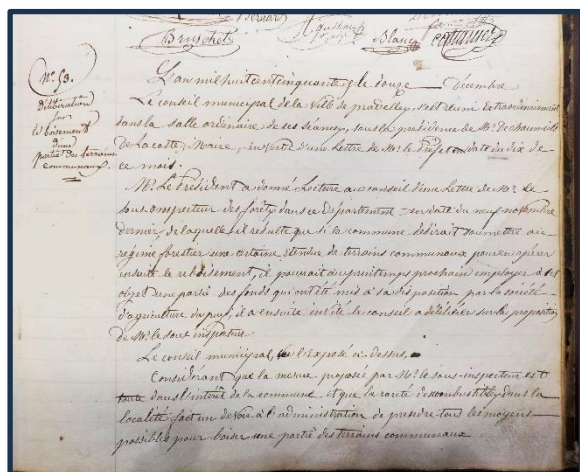 Bernard
Bruschet
Blanc
N° 53.
délibération
sur
le boisement
d'une
partie des terrains
communaux.
L'an mil huit cent cinquante & le douze Décembre
Le conseil municipal de la ville de pradelles, s'est réuni extraordinairement
dans la salle ordinaire de ses séances, sous la présidence de Mr. De
Lacoste, Maire, en vertu d'une Lettre de Mr. le Préfet en date du dix de
ce mois.
Mr. Le Président a donné lecture au conseil d'une Lettre de Mr. Le
sous inspecteur des forêts dans ce Département en date du neuf novembre
dernier, de laquelle il résulte que si la commune désirait soumettre au
régime forestier une certaine étendue de terrains communaux pour en opérer
ensuite le reboisement, il pourrait au printemps prochain employer à cet
objet une partie des fonds qui ont été mis à sa disposition par la société
d'agriculture du puy, il a ensuite invité le conseil à délibérer sur la proposition
de Mr. le sous inspecteur.
Le conseil municipal, vu l'Exposé ci-dessus,
Considérant que la mesure proposée par Mr. le sous-inspecteur est
dans l'intérêt de la commune et que la rareté du combustible dans la
localité fait un devoir à l'administration de prendre tous les moyens
possibles pour boiser une partie des terrains communaux